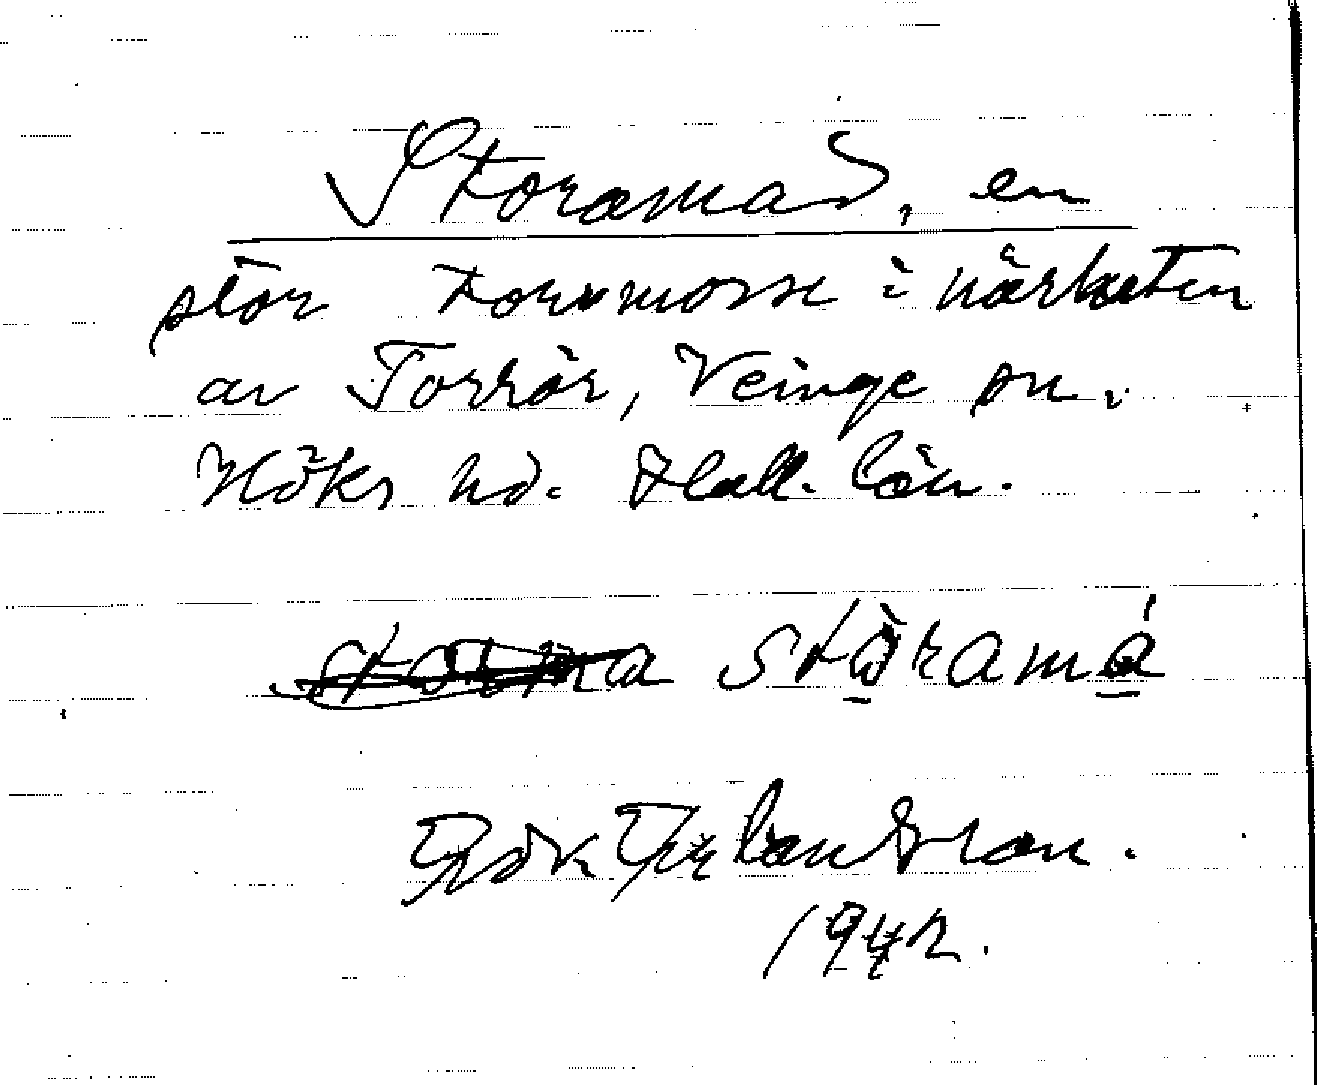 Storamad, en
stor torvmosse i närheten
av Torrör, Veinge sn.
Höks hd. Hall. län.
stòramá
1942.